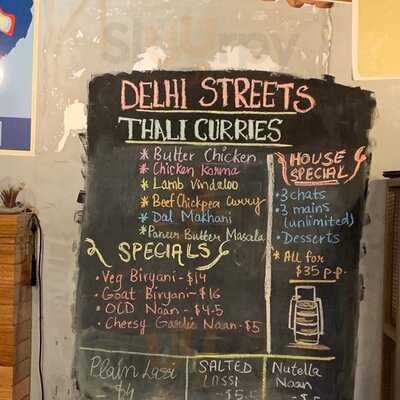 DELHI STREETS
THALI CURRIES
* Butter Chicken
* Chicken Korma
* Lamb Vindaloo
* Beef Chickpea Curry
* Dal Makhani
* Paneer Butter Masala
SPECIALS
• Veg Biryani - $14
• Goat Biryani - $16
• OLD Naan - $4.5
• Chersy Garlic Naan - $5
HOUSE
SPECIAL
• 3 chats
• 3 mains
(unlimited)
• Desserts
* All for
$35 p.p.
Plain Lassi
$4
SALTED
LASSI
- $5.5
Nutella
Naan